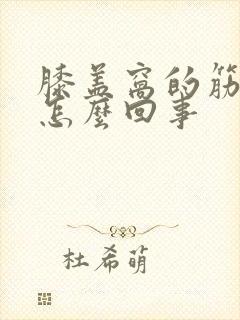 膝盖窝的筋
怎麼回事
杜希萌